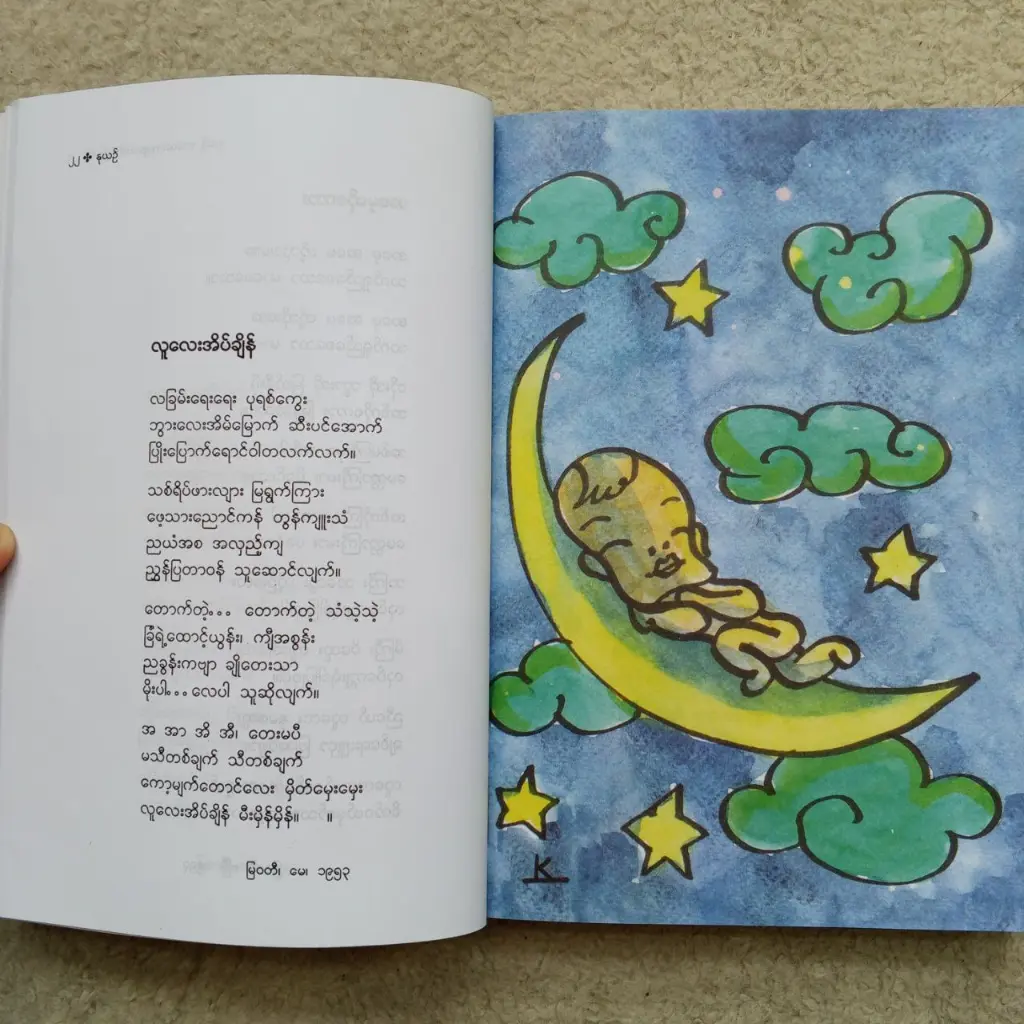 ၂၂ ✤ နယဉ်
လူလေးအိပ်ချိန်
လခြမ်းရေးရေး ပုရစ်ကွေး
ဘွားလေးအိမ်မြောက် ဆီးပင်အောက်
ပြိုးပြောက်ရောင်ဝါတလက်လက်။
သစ်ရိပ်ဖားလျား မြရွက်ကြား
ဖေ့သားညောင်ကန် တွန်ကျူးသံ
ညယံအစ အလှည့်ကျ
ညွှန်ပြတာဝန် သူဆောင်လျက်။
တောက်တဲ့... တောက်တဲ့ သံသဲ့သဲ့
ခြံရဲ့ထောင့်ယွန်း၊ ကျီအစွန်း
ညခွန်းကဗျာ ချိုတေးသာ
မိုးပါ... လေပါ သူဆိုလျက်။
အ အာ အိ အီ၊ တေးမပီ
မသီတစ်ချက် သီတစ်ချက်
ကော့မျက်တောင်လေး မှိတ်မှေးမှေး
လူလေးအိပ်ချိန် မီးမှိန်မှိန်။ ။
မြဝတီ၊ မေ၊ ၁၉၅၃
K